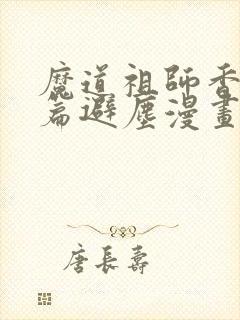 魔道祖師香
篇避塵漫畫
唐長壽